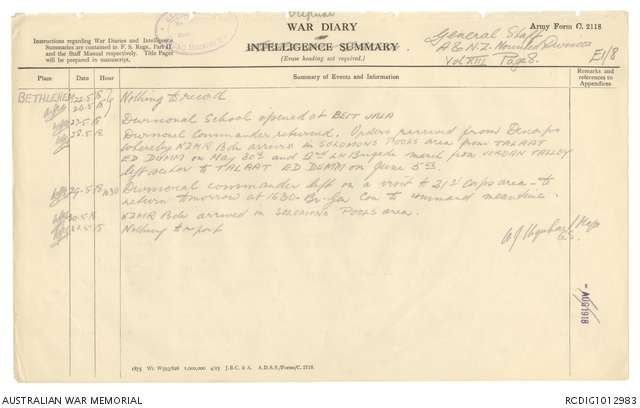 Original
WAR DIARY
or
INTELLIGENCE SUMMARY
(Erase heading not required.)
Army Form C. 2118
Instructions regarding War Diaries and Intelligence
Summaries are contained in F. S. Regs., Part II
and the Staff Manual respectively. Title Pages
will be prepared in manuscript.
General Staff
A & N.Z. Mounted Division
Vol XXVII Page 8.
E1/8
Place
Date
Hour
Summary of Events and Information
Remarks and
references to
Appendices
BETHLEHEM
Nothing to record
27.5.18 Divisional School opened at BEIT JALA
28.5.18 Divisional Commander returned. Orders received from Descorps
whereby NZMR Bde arrived in SOLOMONS POOLS area from TALAAT
ED DUMM on May 30th and 2nd LH Brigade march from JORDAN VALLEY
left sector to TALAAT ED DUMM on June 5th.
29.5.18 1030 Divisional commander left on a visit to 21st Corps area - to
return tomorrow at 1630. Br. Gen Cox to command meantime.
30.5.18 NZMR Bde arrived in SOLOMONS POOLS area.
31.5.18 Nothing to report
Major
G.S.
AUG 1918
1875 Wt. W593/826 1,000,000 4/15 J.B.C. & A. A.D.S.S./Forms/C. 2118.
AUSTRALIAN WAR MEMORIAL
RCDIG1012983